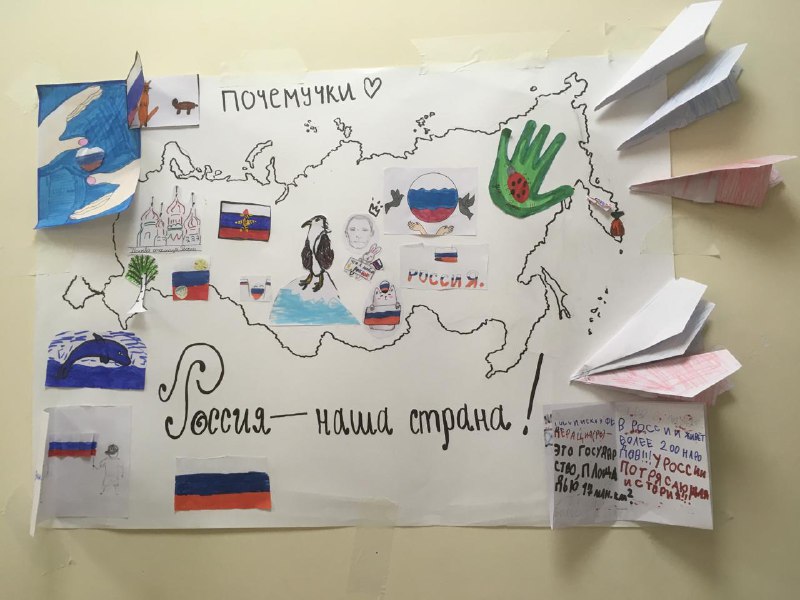 Почемучки
РОССИЯ.
Россия — наша страна!
ЭТО ГОСУДАР
СТВО, ПЛОЩА
ДЬЮ 17 МЛН. КМ²
В РОССИИ ЖИВЕТ
БОЛЕЕ 200 НАРО
ДОВ!!! У РОССИИ
ПОТРЯСАЮЩАЯ
ИСТОРИЯ!!!